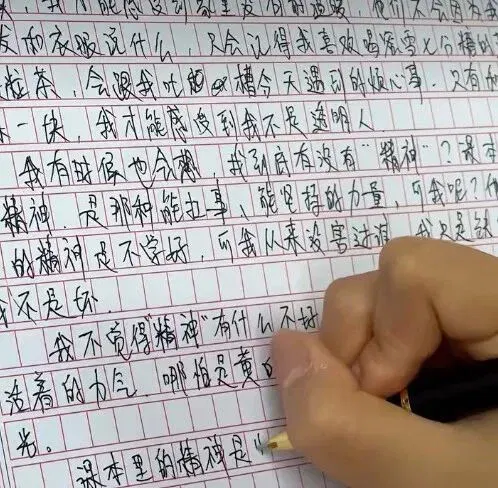 才能感受到
的衣服说什么，只会记得我喜欢喝茶雪七分糖的
粒茶，会跟我吐槽今天遇到的烦心事。只有
一块，我才能感受到我不是透明人
我有时候也会想，我到底有没有"精神"？课本
精神，是那种能扛事、能坚持的力量，可我呢？
的精神是不学好，可我从来没害过谁，我只是
我不是坏
我不觉得"精神"有什么不好
活着的力气，哪怕是黄
光。
课本里的精神是